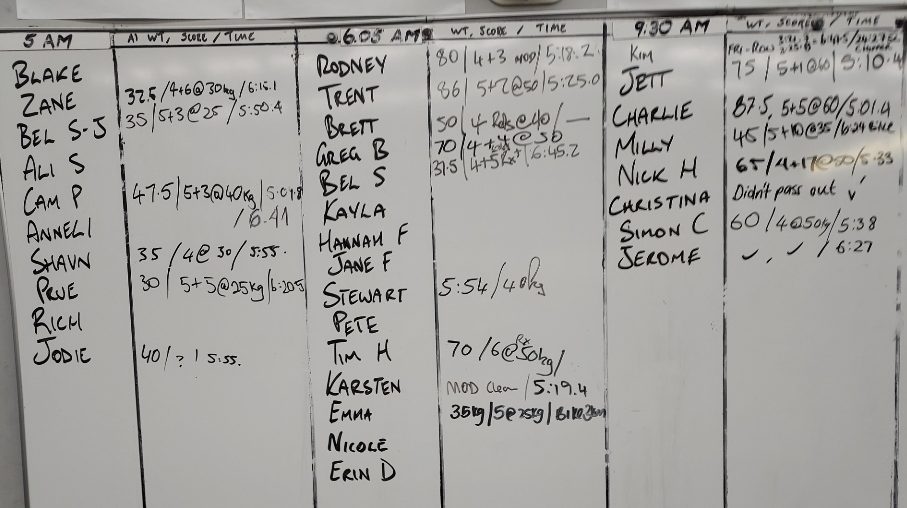 5 AM
A) WT, SCORE / TIME
BLAKE
ZANE 32.5 / 4+6@30kg / 6:15.1
BEL S-J 35 / 5+3@25 / 5:50.4
ALI S
CAM P 47.5 / 5+3@40kg / 5:01.8
/ 6:41
ANNELI
SHAUN 35 / 4@30 / 5:55.
PRUE 30 / 5+5@25kg / 6:20.5
RICH
JODIE 40 / ? / 5:55.
6.05 AM
WT, SCORE / TIME
RODNEY 80 / 4+3 MOD / 5:18.2
TRENT 86 / 5+2@50 / 5:25.0
BRETT 50 / 4 @40 / —
GREG B 70 / 4+4@50
BEL S 37.5 / 4+5Rx / 6:45.2
KAYLA
HANNAH F
JANE F
STEWART 5:54 / 40kg
PETE
TIM H 70 / 6@50kg /
Rx
KARSTEN MOD Clean / 5:19.4
EMMA 35kg / 5@25kg /
NICOLE
ERIN D
9.30 AM
WT, SCORE / TIME
KIM
JETT 75 / 5+1@60 / 5:10.4
CHARLIE 87.5, 5+5@60 / 5:01.4
MILLY 45 / 5+10@35 / 6:24
NICK H 65 / 4+17@50 / 5:33
CHRISTINA Didn't pass out ✓
SIMON C 60 / 4@50kg / 5:38
JEROME ✓, ✓ / 6:27